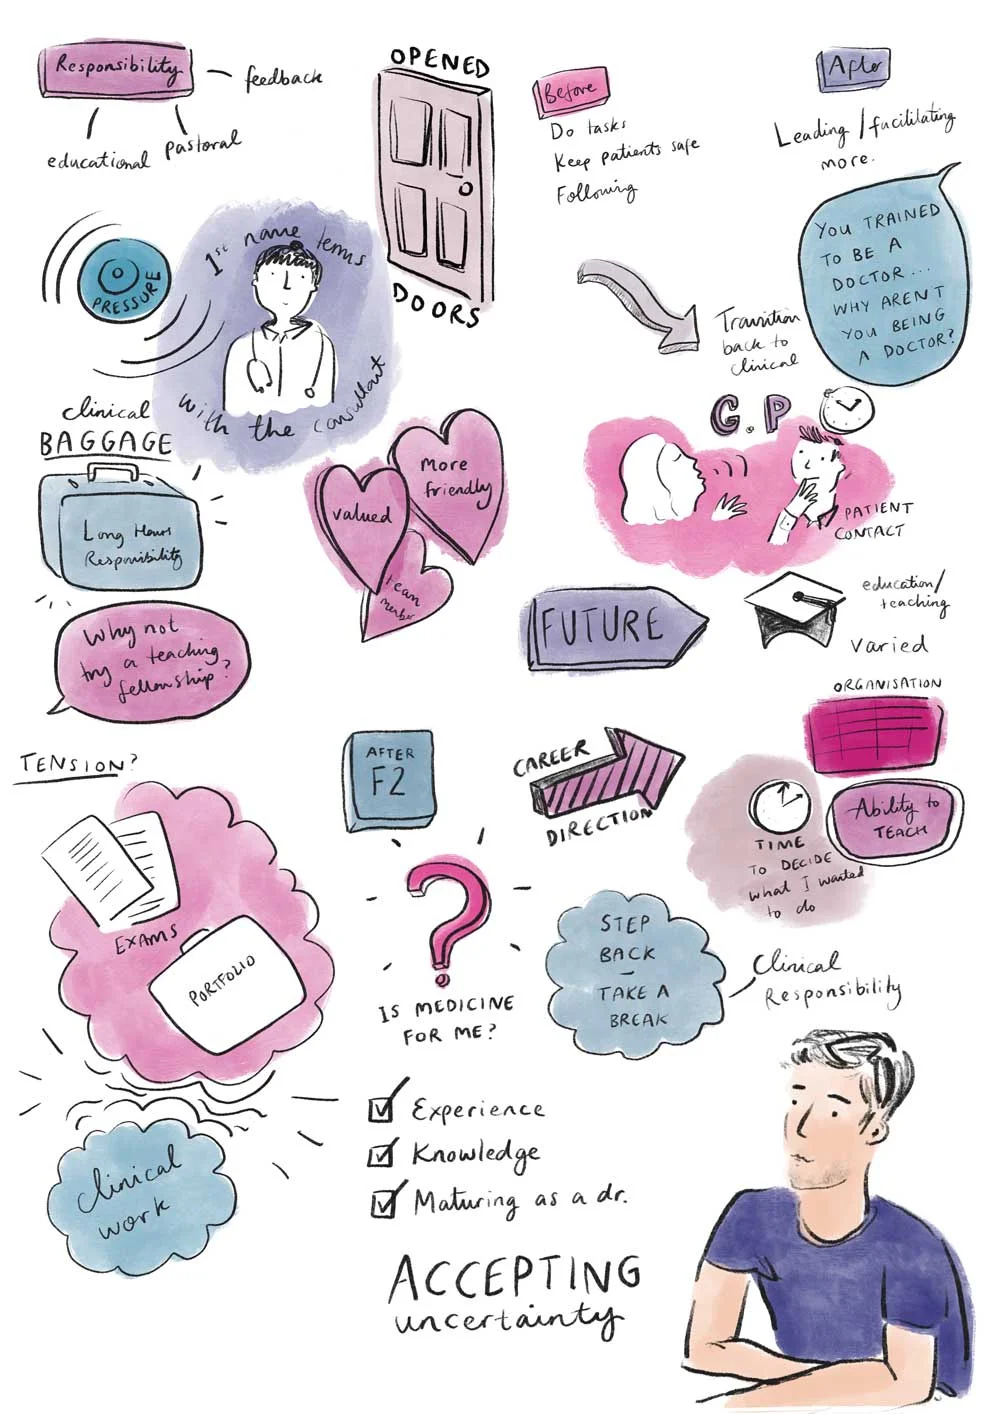 Responsibility
feedback
educational
pastoral
OPENED
DOORS
Before
Do tasks
Keep patients safe
Following
After
Leading/facilitating
more.
YOU TRAINED
TO BE A
DOCTOR...
WHY AREN'T
YOU BEING
A DOCTOR?
Transition
back to
clinical
PRESSURE
1st name terms
with the consultant
clinical
BAGGAGE
Long Hours
Responsibility
valued
More
friendly
team
member
G.P
PATIENT
CONTACT
Why not
try a teaching
fellowship?
FUTURE
education/
teaching
varied
ORGANISATION
Ability to
TEACH
TENSION?
EXAMS
PORTFOLIO
Clinical
work
AFTER
F2
CAREER
DIRECTION
TIME
TO DECIDE
what I wanted
to do
IS MEDICINE
FOR ME?
STEP
BACK
–
TAKE A
BREAK
Clinical
Responsibility
Experience
Knowledge
Maturing as a dr.
ACCEPTING
uncertainty